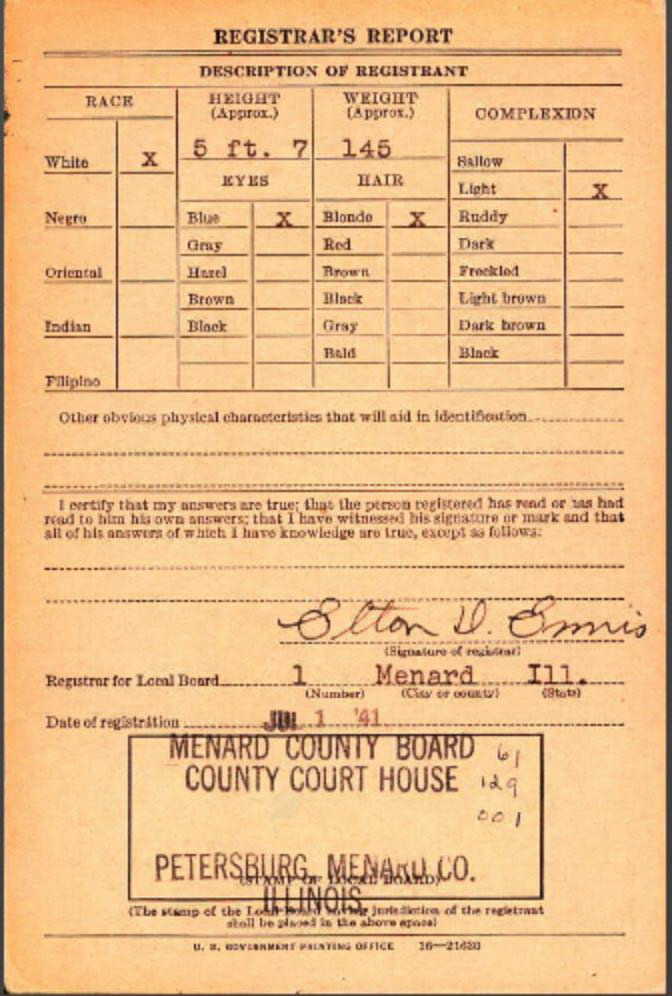 REGISTRAR'S REPORT
DESCRIPTION OF REGISTRANT
RACE
HEIGHT
(Approx.)
WEIGHT
(Approx.)
COMPLEXION
White X
5 ft. 7
145
Sallow
EYES
HAIR
Light X
Negro
Blue X
Blonde X
Ruddy
Gray
Red
Dark
Oriental
Hazel
Brown
Freckled
Brown
Black
Light brown
Indian
Black
Gray
Dark brown
Bald
Black
Filipino
Other obvious physical characteristics that will aid in identification
I certify that my answers are true; that the person registered has read or has had
read to him his own answers; that I have witnessed his signature or mark and that
all of his answers of which I have knowledge are true, except as follows:
Elton D. Ennis
(Signature of registrar)
Registrar for Local Board 1 Menard Ill.
(Number) (City or county) (State)
Date of registration JUL 1 '41
MENARD COUNTY BOARD 61
COUNTY COURT HOUSE 129
001
PETERSBURG, MENARD CO.
(STAMP OF LOCAL BOARD)
ILLINOIS
(The stamp of the Local Board having jurisdiction of the registrant
shall be placed in the above space)
U. S. GOVERNMENT PRINTING OFFICE 16—21630